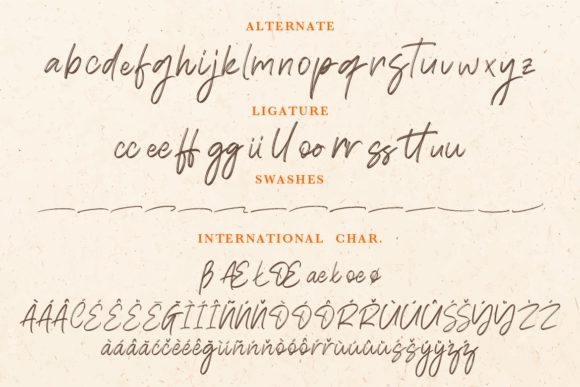 ALTERNATE
abcdefghijklmnopqrstuvwxyz
LIGATURE
cc ee ff gg ii ll oo rr ss tt uu
SWASHES
INTERNATIONAL CHAR.
β Æ Ł Œ æ ł œ ø
ÀÁÂĆÉÈÊĒĞÌÍÎÑŃŇÒÓÔŔŘÙÚÛŚŠÝŸŹŻ
àáâãćčèéêğùñńňòóôŕřùúûśšýÿźż